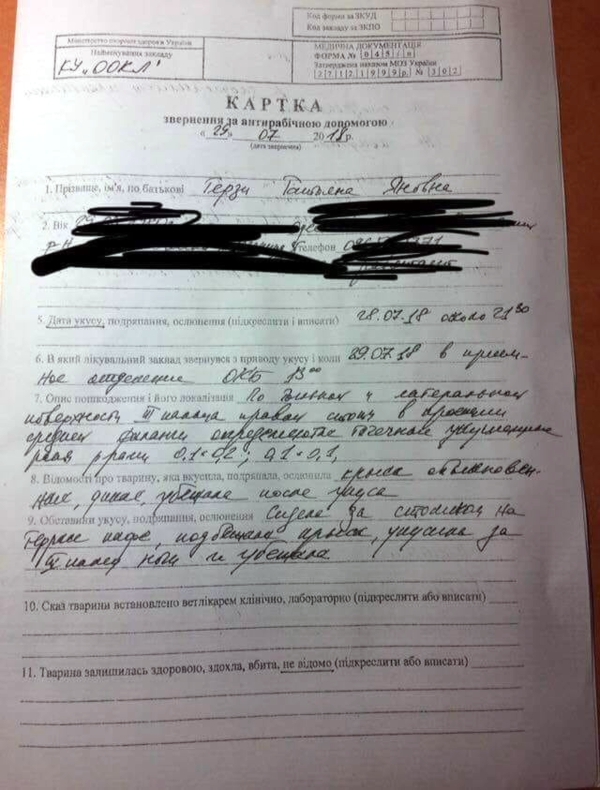 Код форми за ЗКУД
Код закладу за ЗКПО
Міністерство охорони здоров'я України
Найменування закладу
КУ „ООКЛ"
МЕДИЧНА ДОКУМЕНТАЦІЯ
ФОРМА № 045/о
Затверджена наказом МОЗ України
27121999р. № 302
КАРТКА
звернення за антирабічною допомогою
« 29 » 07 2018 р.
(дата звернення)
1. Прізвище, ім'я, по батькові Герзи Татьяна Яновна
2. Вік
р-н телефон
5. Дата укусу, подряпання, ослюнення (підкреслити і вписати) 28.07.18 около 21 30
6. В який лікувальний заклад звернувся з приводу укусу і коли 29.07.18 в прием-
ное отделение ОКБ 13 00
7. Опис пошкодження і його локалізація По и латеральной
поверхности III пальца правой стопы в проекции
средней фаланги определяются точечные укушенные
раны 0,1×0,2; 0,1×0,1,
8. Відомості про тварину, яка вкусила, подряпала, ослюнила крыса обыкновен-
ная, дикая, убежала после укуса
9. Обставини укусу, подряпання, ослюнення Сидела за столиком на
террасе кафе, подбежала крыса, укусила за
III палец ноги и убежала
10. Сказ тварини встановлено ветлікарем клінічно, лабораторно (підкреслити або вписати)
11. Тварина залишилась здоровою, здохла, вбита, не відомо (підкреслити або вписати)